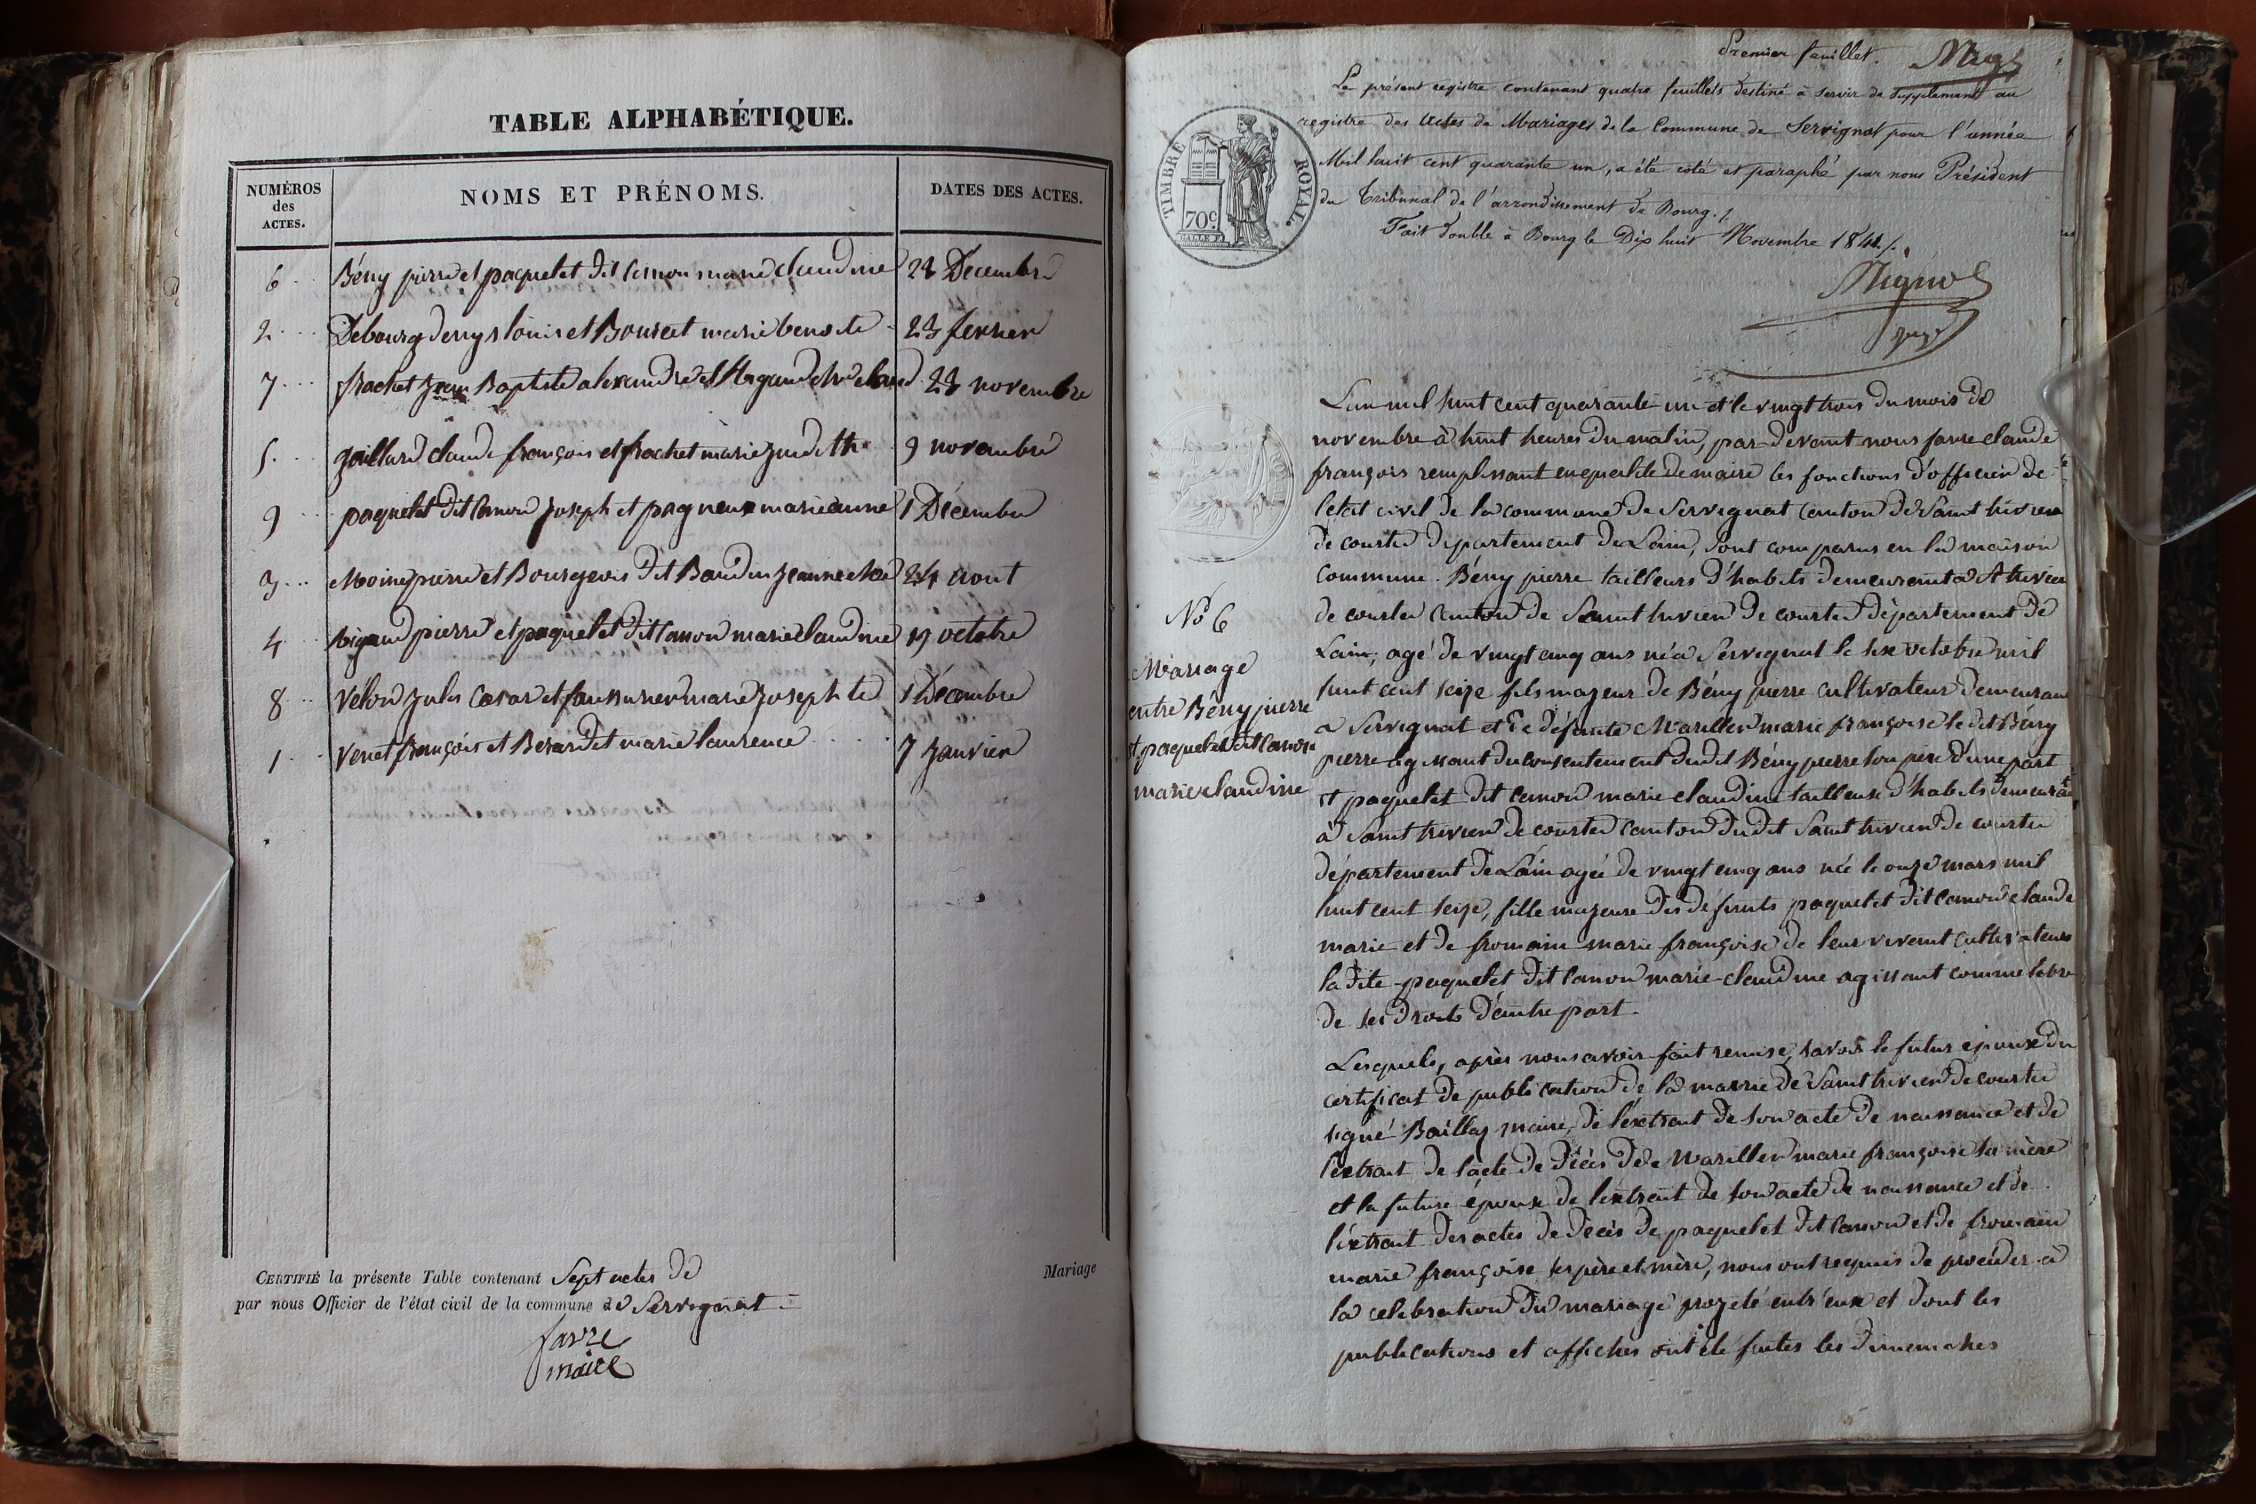 TABLE ALPHABÉTIQUE.
NUMÉROS des ACTES.
NOMS ET PRÉNOMS.
DATES DES ACTES.
6 Bény pierre et paquelet dit Canon marie claudine 23 Decembre
2 Debourg denys louis et Bouvet marie benoite 23 fevrier
7 frachet Jean Baptiste alexandre et 23 novembre
5 gaillard claude françois et frachet marie Judith 9 novembre
9 paquelet dit Canon Joseph et pagneux marie anne 1 Décembre
3 Moine pierre et Bourgeois dit Baudin Jeanne 24 aout
4 pierre et paquelet dit Canon marie claudine 19 octobre
8 Velon Jules Cesar et marie Josephte 1 Décembre
1 Venet françois et Berardet marie laurence 7 Janvier
CERTIFIÉ la présente Table contenant Sept actes de Mariage
par nous Officier de l'état civil de la commune de Servignat
favre
maire
Premier feuillet.
Le présent registre contenant quatre feuillets destiné à servir de supplement au
registre des actes de Mariages de la Commune de Servignat pour l'année
Mil huit cent quarante un, a été coté et paraphé par nous Président
du Tribunal de l'arrondissement de Bourg./.
Fait double à Bourg le Dix huit Novembre 1841./.
TIMBRE ROYAL.
70c
Juge
L'an mil huit cent quarante un et le vingt trois du mois de
novembre à huit heures du matin, par devant nous favre claude
françois remplissant en qualité de maire les fonctions d'officier de
létat civil de la commune de Servignat canton de Saint trivier
de courtes département de Lain, sont comparus en la maison
commune. Bény pierre tailleurs d'habits demeurant a St trivier
de courtes canton de Saint trivier de courtes département de
Lain, agé de vingt cinq ans né a Servignat le six octobre mil
huit cent seize fils majeur de Bény pierre cultivateur demeurant
a Servignat et de défunte Marillier marie françoise le dit Bény
pierre agissant du consentement dudit Bény pierre son père d'une part
et paquelet dit canon marie claudine tailleuse d'habits demeurant
à Saint trivier de courtes canton dudit Saint trivier de courtes
département de Lain agée de vingt cinq ans née le onze mars mil
huit cent seize, fille majeure des défunts paquelet dit canon claude
marie et de fromain marie françoise de leur vivant cultivateurs
la dite paquelet dit canon marie-claudine agissant comme libre
de ses droits d'autre part.
Lesquels, après nous avoir fait remise, savoir le futur époux du
certificat de publication de la mairie de Saint trivier de courtes
signé Bailly maire, de l'extrait de son acte de naissance et de
l'extrait de l'acte de décès de Marillier marie françoise sa mère
et la future épouse de l'extrait de son acte de naissance et de
l'extrait des actes de décès de paquelet dit canon et de fromain
marie françoise ses père et mère, nous ont requis de procéder à
la celebration du mariage projeté entr'eux et dont les
publications et affiches ont été faites les dimanches
No 6
Mariage
entre Bény pierre
et paquelet dit canon
marie claudine